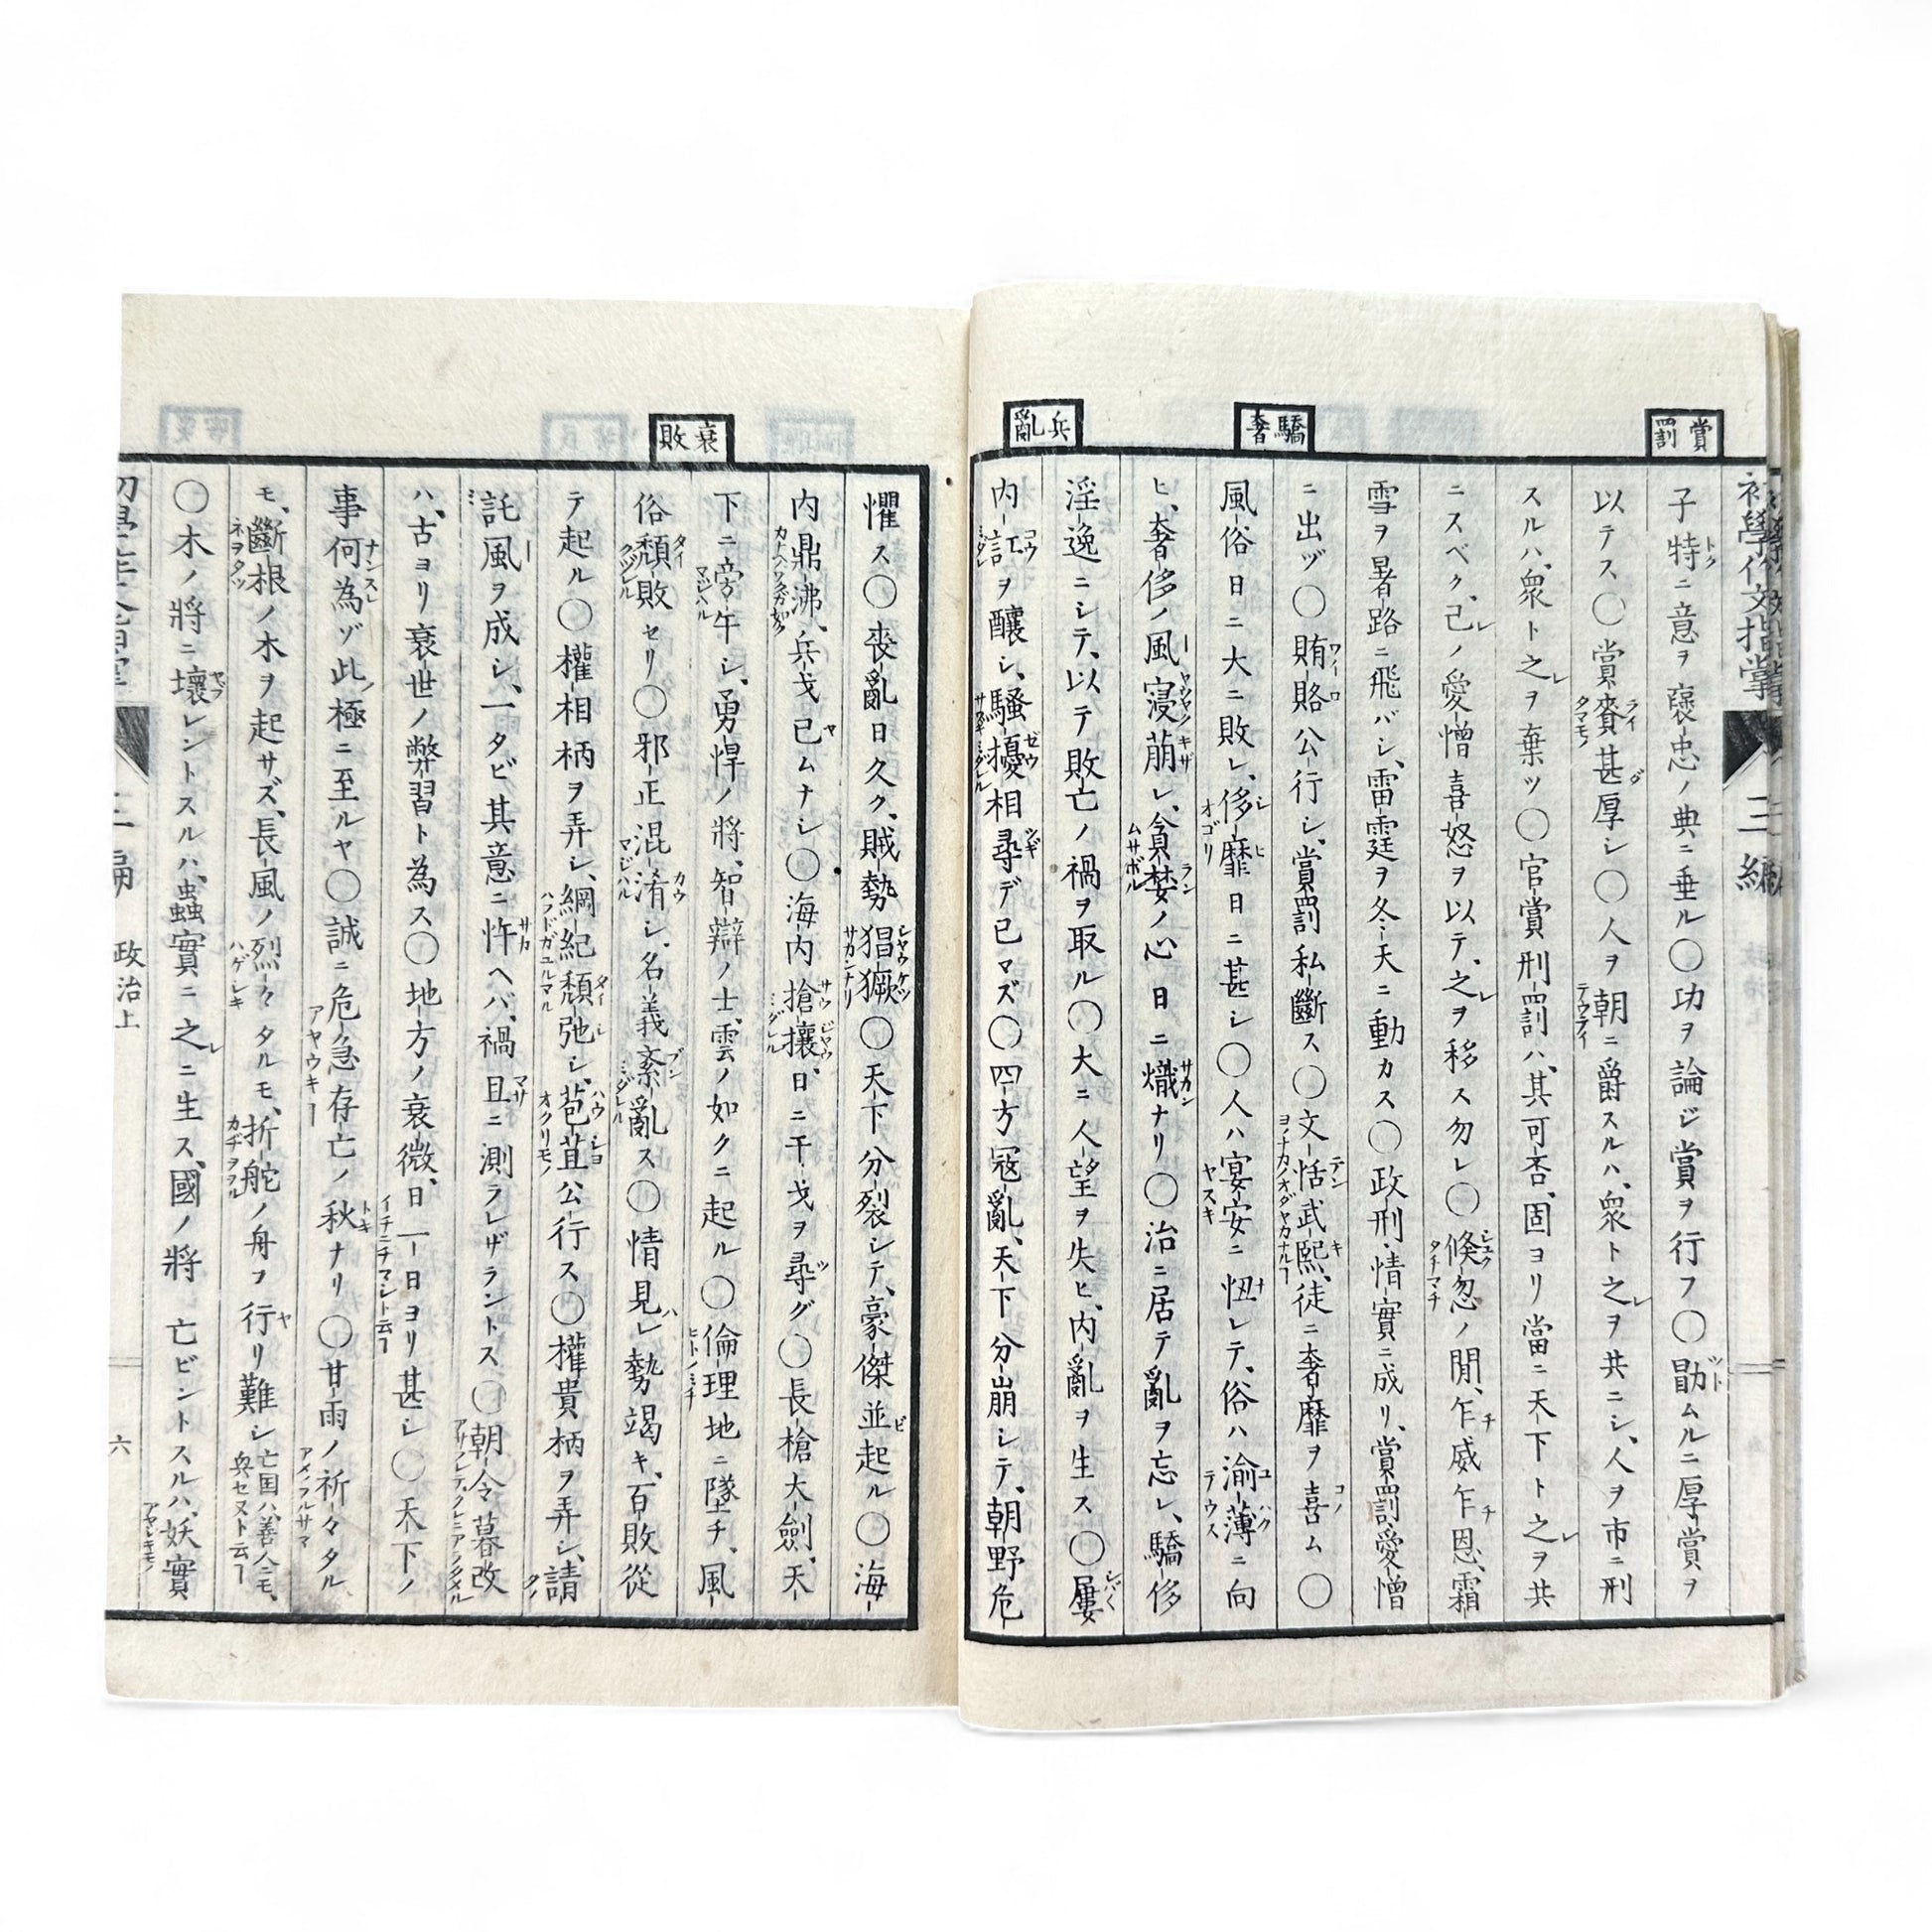 賞罰
驕奢
兵亂
初學作文指掌
三編
子特ニ意ヲ襃忠ノ典ニ垂ル〇功ヲ論ジ賞ヲ行フ〇勖ムルニ厚賞ヲ
以テス〇賞賚甚厚シ〇人ヲ朝ニ爵スルハ、衆ト之ヲ共ニシ、人ヲ市ニ刑
スルハ、衆ト之ヲ棄ツ〇官賞刑罰ハ、其可否、固ヨリ當ニ天下ト之ヲ共
ニスベク、己ノ愛憎喜怒ヲ以テ、之ヲ移ス勿レ〇倏忽ノ間、乍威乍恩、霜
雪ヲ暑路ニ飛バシ、雷霆ヲ冬天ニ動カス〇政刑、情實ニ成リ、賞罰、愛憎
ニ出ヅ〇賄賂公行シ、賞罰私斷ス〇文恬武熙、徒ニ奢靡ヲ喜ム〇
風俗日ニ大ニ敗レ、侈靡日ニ甚シ〇人ハ宴安ニ忸レテ、俗ハ渝薄ニ向
ヒ、奢侈ノ風寖萠シ、貪婪ノ心日ニ熾ナリ〇治ニ居テ亂ヲ忘レ、驕侈
淫逸ニシテ、以テ敗亡ノ禍ヲ取ル〇大ニ人望ヲ失ヒ、内亂ヲ生ス〇屢
内訌ヲ釀シ、騷擾相尋デ已マズ〇四方寇亂、天下分崩シテ、朝野危
衰敗
懼ス〇喪亂日久ク、賊勢猖獗〇天下分裂シテ、豪傑並起ル〇海
内鼎沸、兵戈已ムナシ〇海内搶攘、日ニ干戈ヲ尋グ〇長槍大劍、天
下ニ旁午シ、勇悍ノ將、智辯ノ士、雲ノ如クニ起ル〇倫理地ニ墜チ、風
俗頽敗セリ〇邪正混淆シ、名義紊亂ス〇情見レ勢竭キ、百敗從
テ起ル〇權相柄ヲ弄シ、綱紀頽弛シ、苞苴公行ス〇權貴柄ヲ弄シ、請
託風ヲ成シ、一タビ其意ニ忤ヘバ、禍且ニ測ラレザラントス〇朝令暮改
ハ、古ヨリ衰世ノ弊習ト為ス〇地方ノ衰微、日一日ヨリ甚シ〇天下ノ
事何為ゾ此極ニ至ルヤ〇誠ニ危急存亡ノ秋ナリ〇甘雨ノ祈々タル
モ、斷根ノ木ヲ起サズ、長風ノ烈々タルモ、折舵ノ舟ヲ行リ難シ亡国ハ、善人ニモ、與セヌト云フ
〇木ノ將ニ壞レントスルハ、蟲實ニ之ニ生ス、國ノ將亡ビントスルハ、妖實
政治上
六